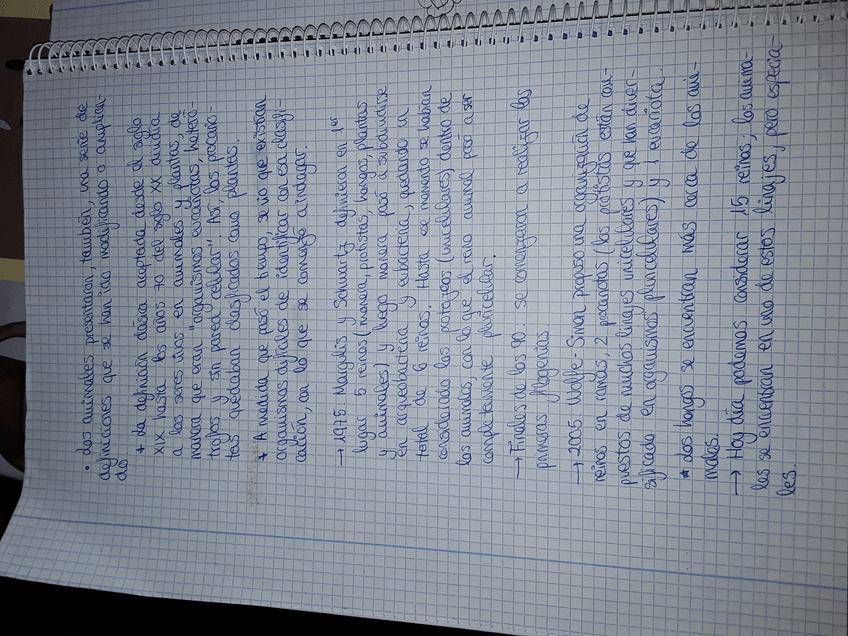 • Los animales presentaran, también, una serie de
definiciones que se han ido modificando o amplian-
do
* La definición clásica aceptada desde el siglo
XIX hasta los años 70 del siglo XX dividia
a los seres vivos en animales y plantas, de
manera que eran "organismos eucariotas, heteró-
trofos y sin pared celular". Así, los procario-
tas quedaban clasificados como plantas.
* A medida que pasó el tiempo, se vio que existían
organismos difíciles de identificar con esa clasifi-
cación, con lo que se comenzó a indagar.
→ 1975 Margulis y Schwartz definieron en 1er
lugar 5 reinos (monera, protistas, hongos, plantas
y animales) y luego monera pasó a subdividirse
en arqueobacteria y eubacteria, quedando un
total de 6 reinos. Hasta ese momento se habían
considerado los protozoos (unicelulares) dentro de
los animales con lo que el reino animal pasó a ser
completamente pluricelular.
→ Finales de los 90: se comenzaron a realizar las
primeras filogenias
→ 2005 Wolfe-Simon propuso una organización de
reinos en ramas, 2 procariotas (los protistas están com-
puestos de muchos linajes unicelulares y que han diver-
sificado en organismos pluricelulares) y 1 eucariota.
* Los hongos se encuentran más cerca de los ani-
males.
→ Hoy día podemos considerar 15 reinos; los anima-
les se encuentran en uno de estos linajes, pero especia-
les.